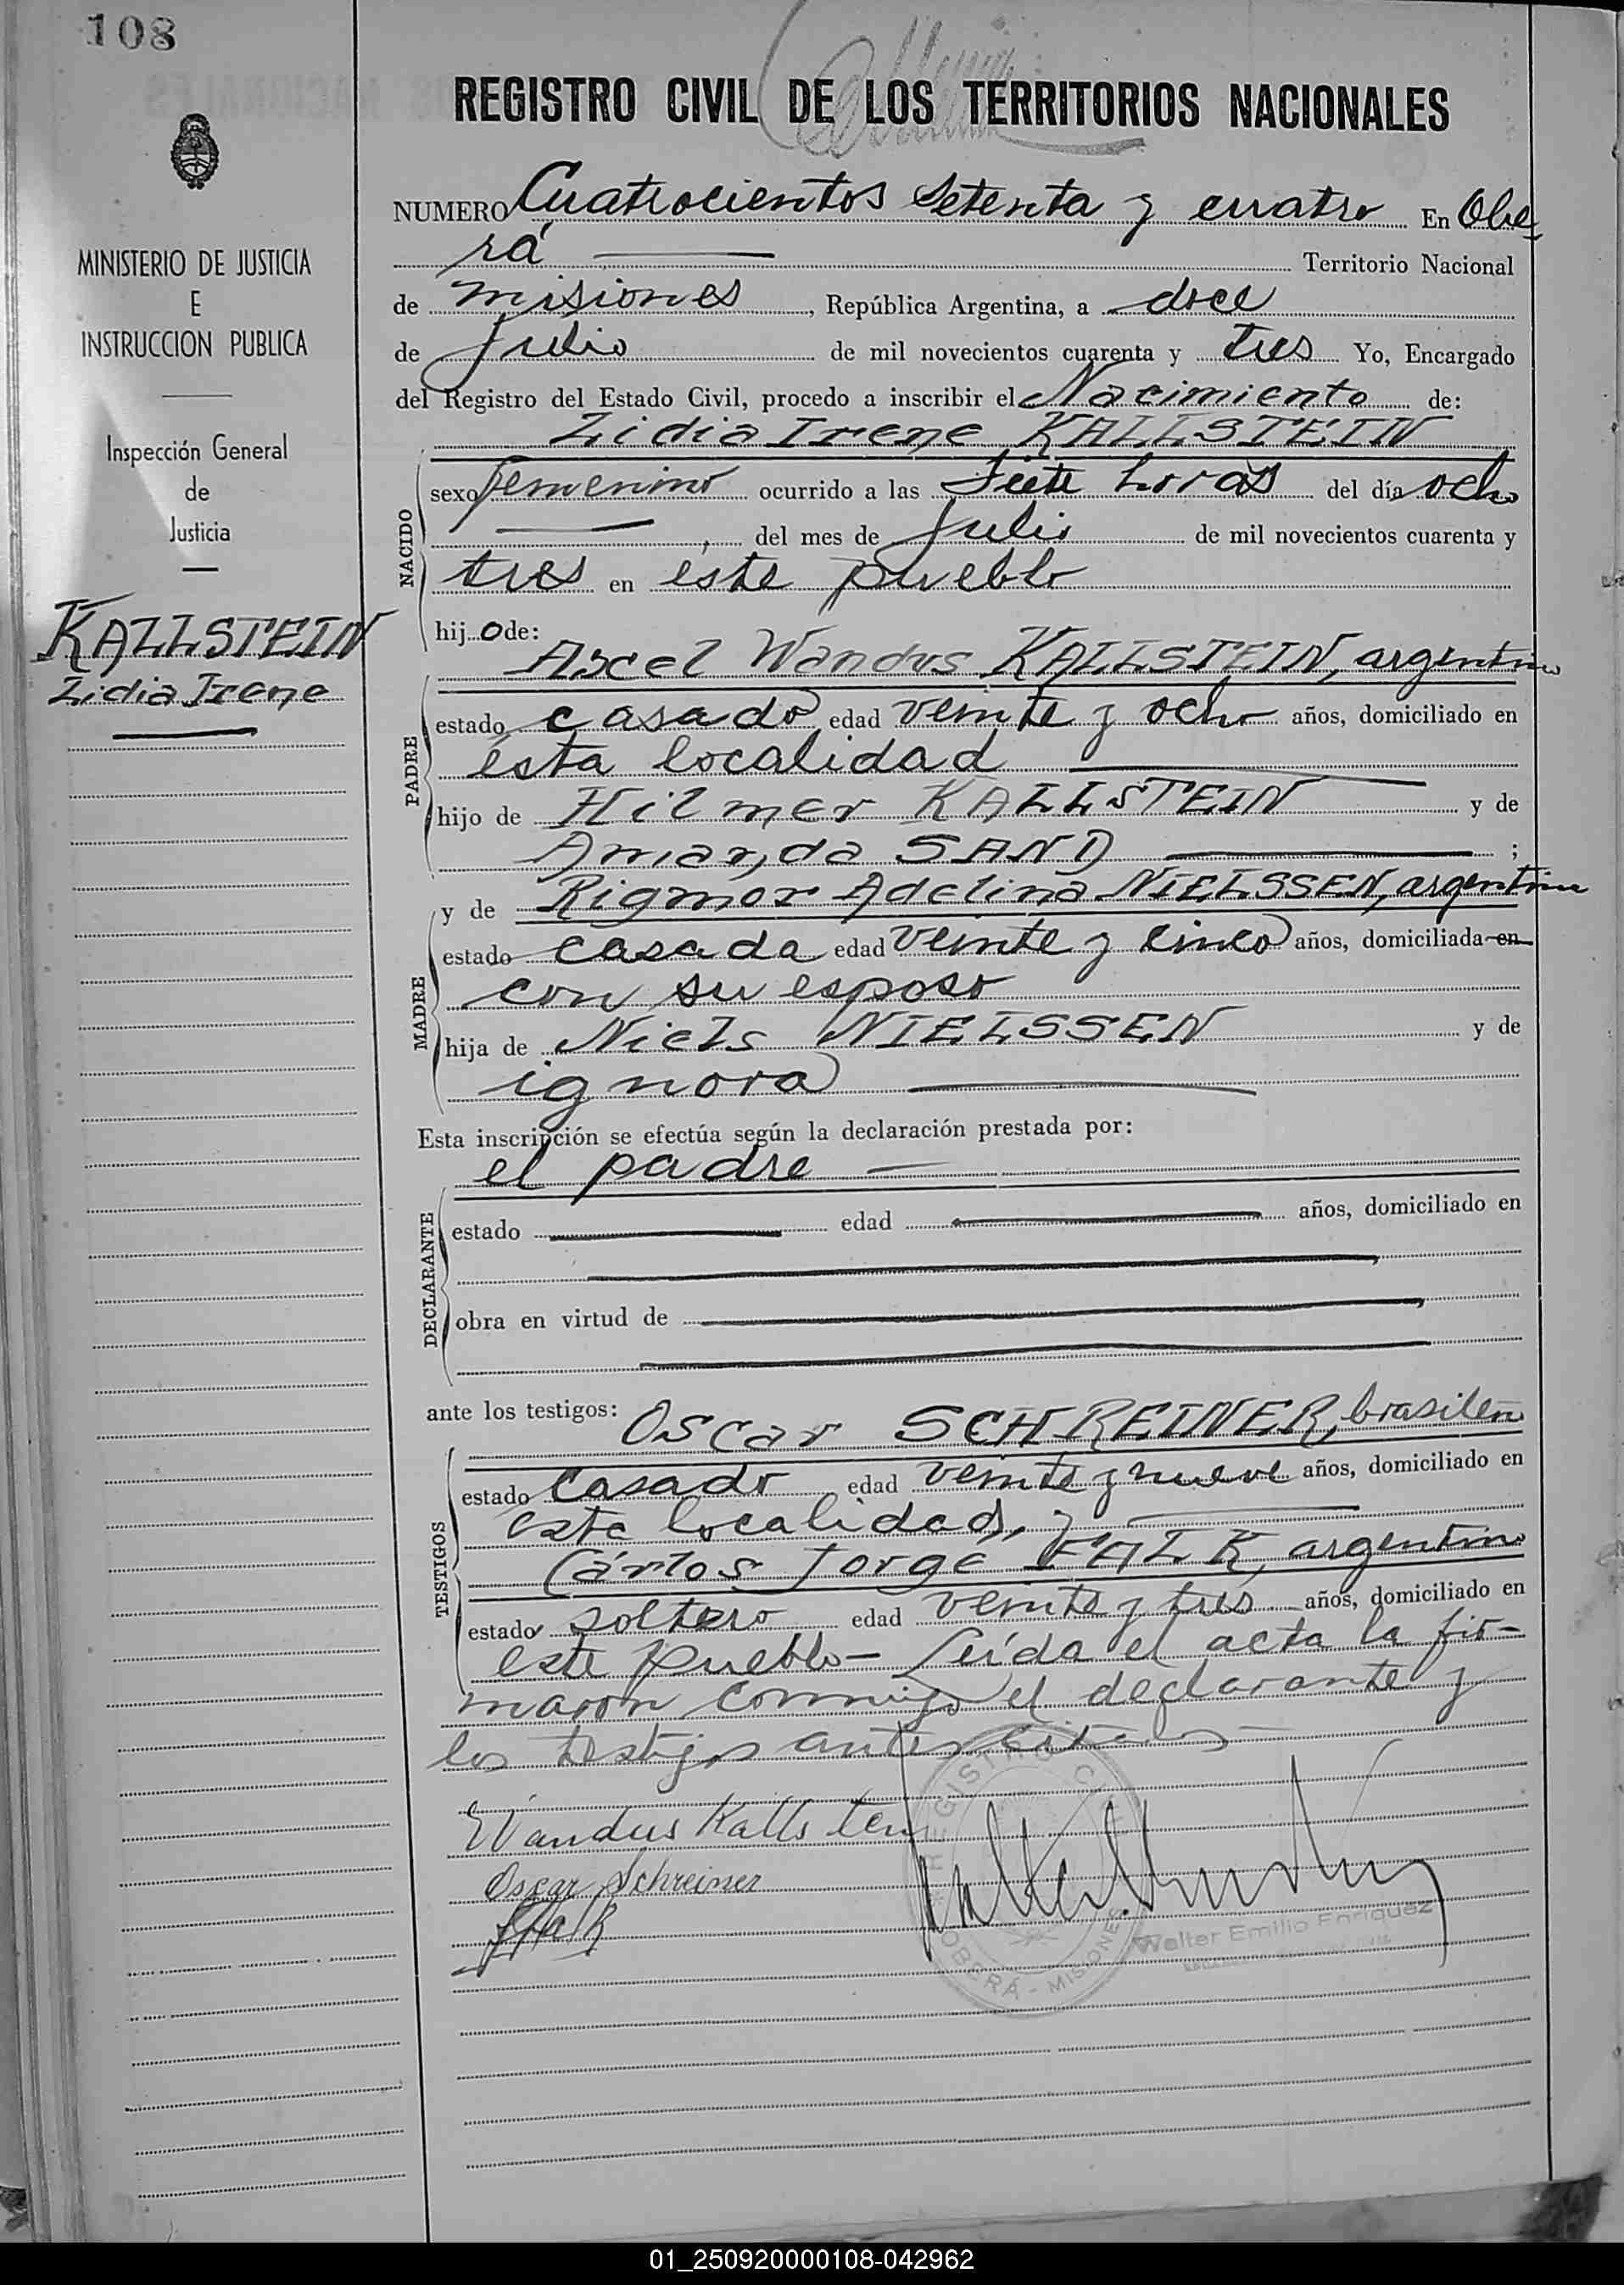 108
REGISTRO CIVIL DE LOS TERRITORIOS NACIONALES
MINISTERIO DE JUSTICIA
E
INSTRUCCION PUBLICA
Inspección General
de
Justicia
KALLSTEIN
Lidia Irene
NUMERO Cuatrocientos setenta y cuatro En Obe-
rá Territorio Nacional
de misiones, República Argentina, a doce
de Julio de mil novecientos cuarenta y tres Yo, Encargado
del Registro del Estado Civil, procedo a inscribir el Nacimiento de:
Lidia Irene KALLSTEIN
NACIDO
sexo femenino ocurrido a las siete horas del día ocho
, del mes de Julio de mil novecientos cuarenta y
tres en este pueblo
hijo de:
PADRE
Axel Wandus KALLSTEIN, argentino
estado casado edad veinte y ocho años, domiciliado en
ésta localidad
hijo de Hilmer KALLSTEIN y de
Amanda SAND ;
MADRE
y de Rigmor Adelina NIELSSEN, argentina
estado casada edad veinte y cinco años, domiciliada en
con su esposo
hija de Niels NIELSSEN y de
ignora
Esta inscripción se efectúa según la declaración prestada por:
el padre
DECLARANTE
estado edad años, domiciliado en
obra en virtud de
ante los testigos:
TESTIGOS
Oscar SCHREINER, brasileño
estado casado edad veinte y nueve años, domiciliado en
esta localidad, y
Cárlos Jorge FALK, argentino
estado soltero edad veinte y tres años, domiciliado en
este pueblo - Leída el acta la fir-
maron conmigo el declarante y
los testigos antes citados
Wandus Kallstein
Oscar Schreiner
Falk
REGISTRO CIVIL
OBERÁ - MISIONES
Walter Emilio Enriquez
01_250920000108-042962